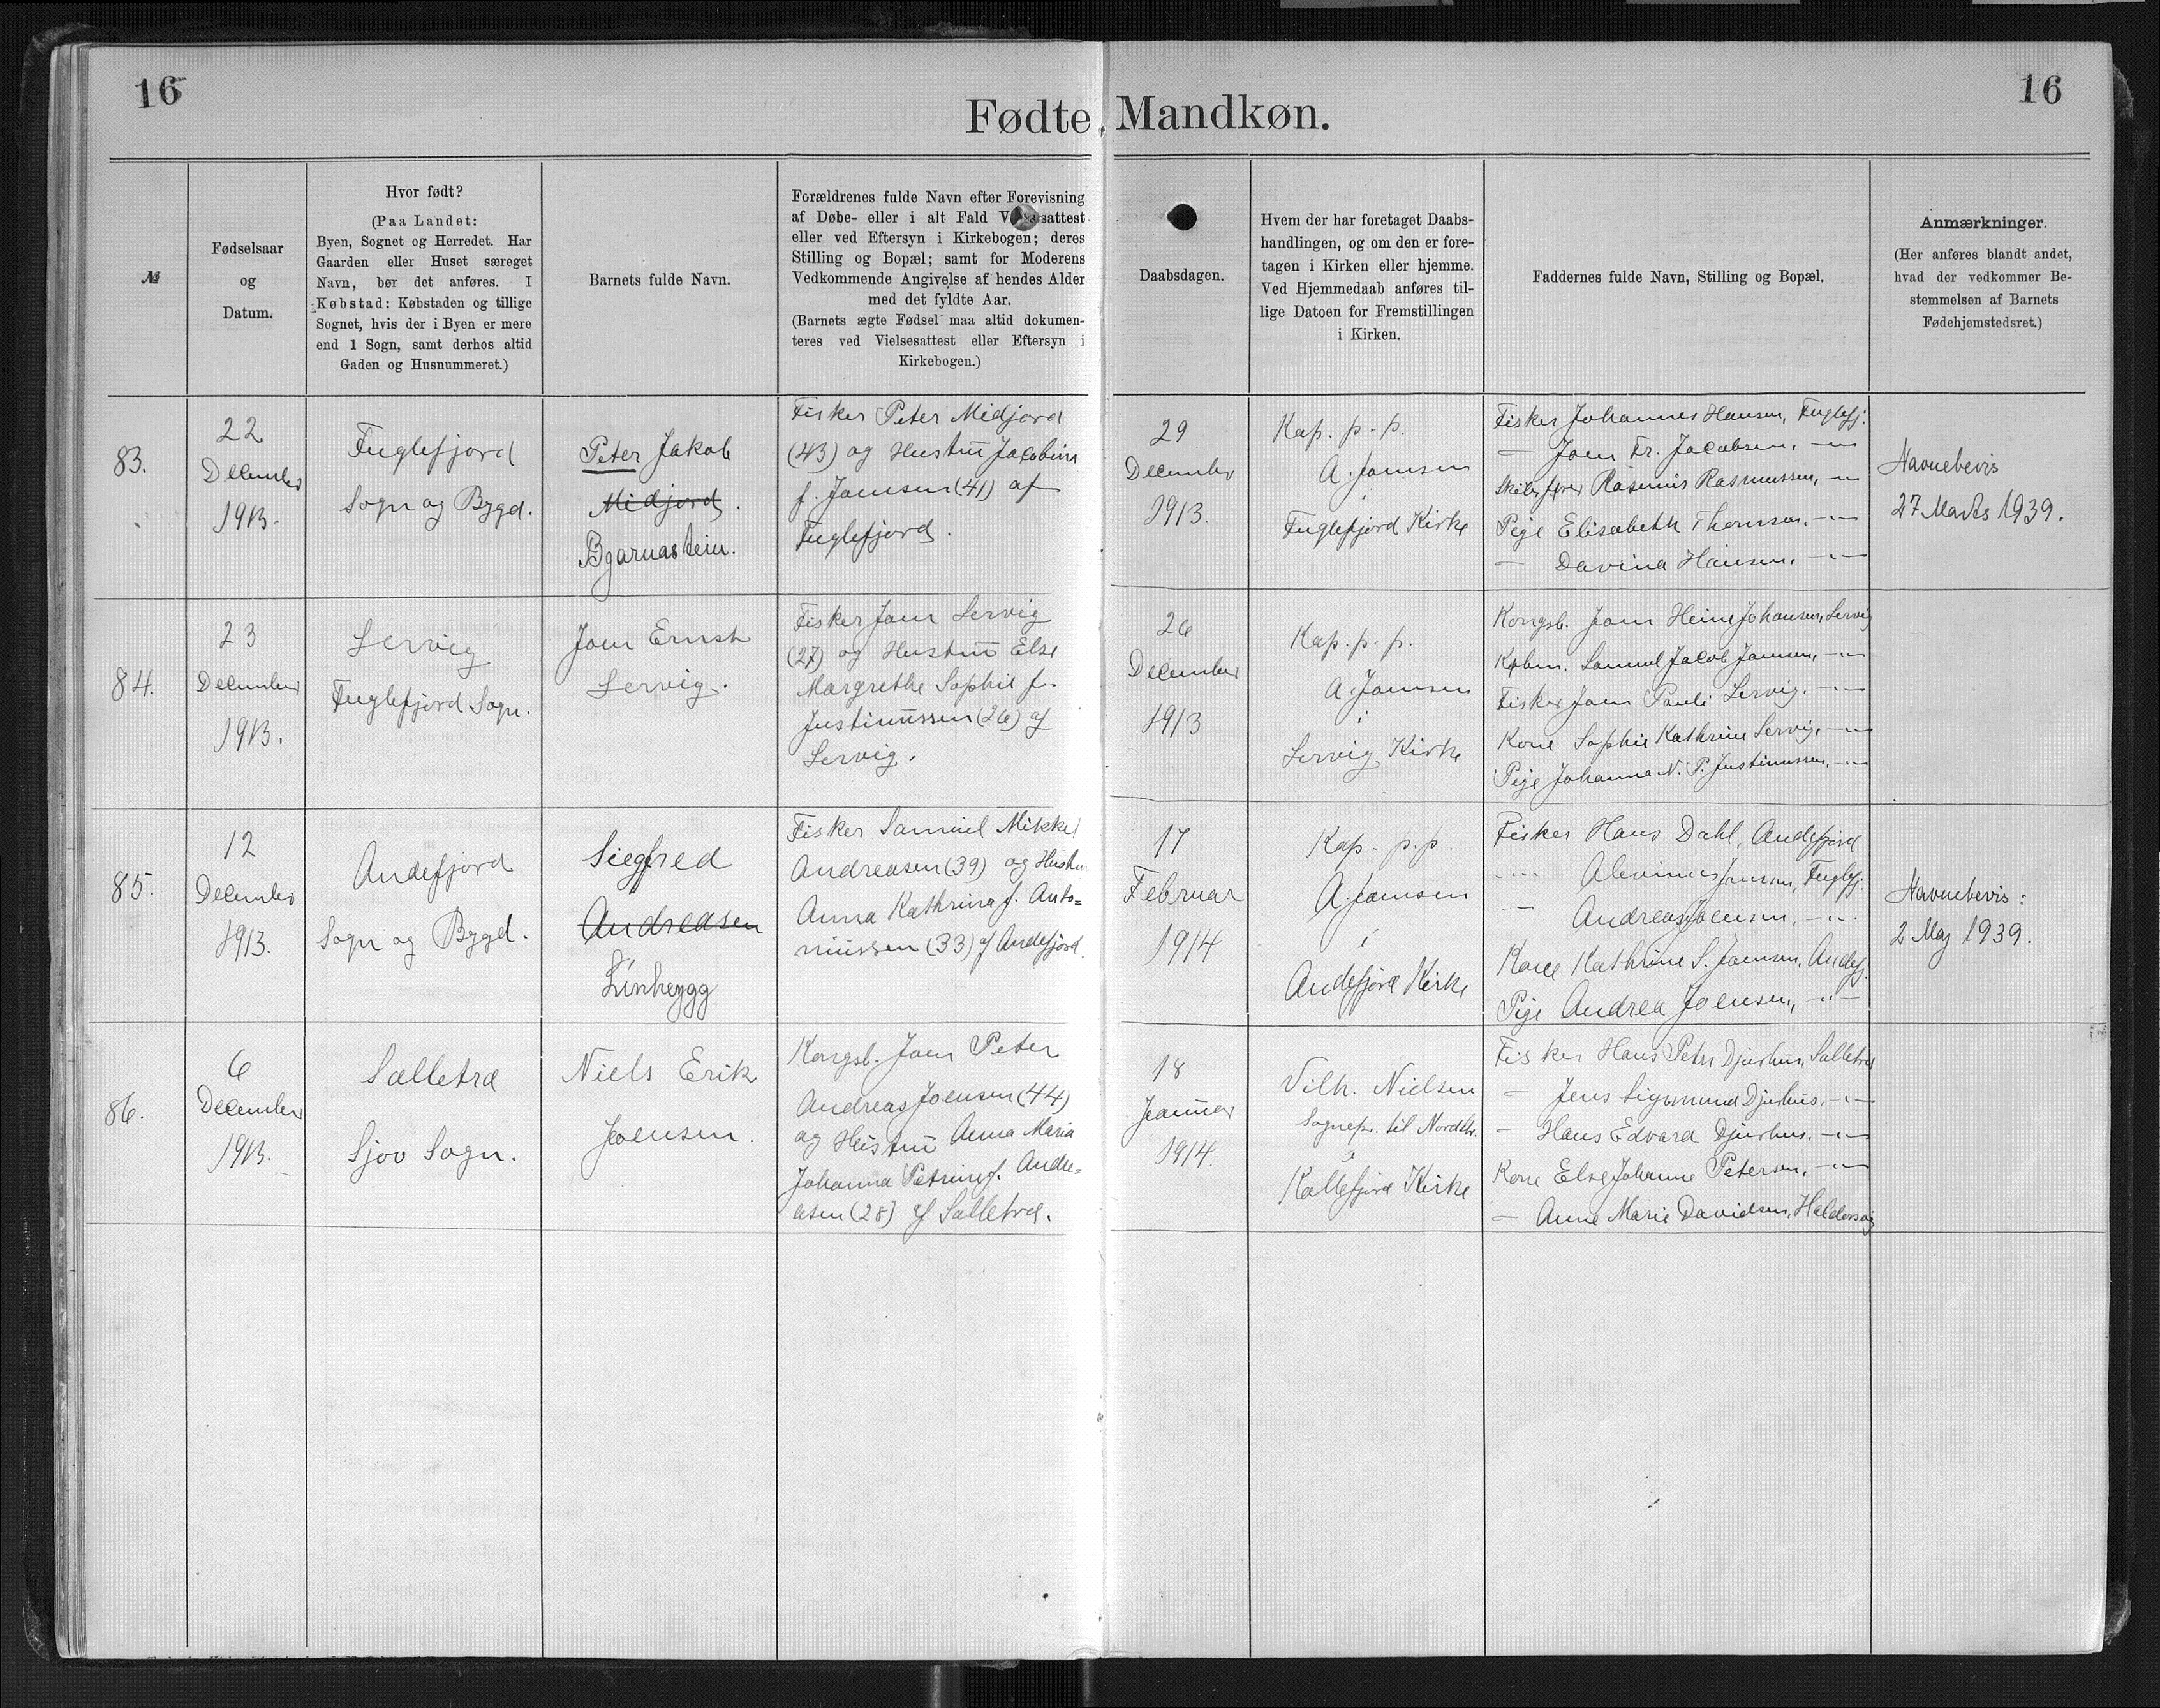 16
16
Fødte, Mandkøn.
№
Fødselsaar
og
Datum.
Hvor født?
(Paa Landet:
Byen, Sognet og Herredet. Har
Gaarden eller Huset særeget
Navn, bør det anføres. I
Købstad: Købstaden og tillige
Sognet, hvis der i Byen er mere
end 1 Sogn, samt derhos altid
Gaden og Husnummeret.)
Barnets fulde Navn.
Forældrenes fulde Navn efter Forevisning
af Døbe- eller i alt Fald
eller ved Eftersyn i Kirkebogen; deres
Stilling og Bopæl; samt for Moderens
Vedkommende Angivelse af hendes Alder
med det fyldte Aar.
(Barnets ægte Fødsel maa altid dokumen-
teres ved Vielsesattest eller Eftersyn i
Kirkebogen.)
Daabsdagen.
Hvem der har foretaget Daabs-
handlingen, og om den er fore-
tagen i Kirken eller hjemme.
Ved Hjemmedaab anføres til-
lige Datoen for Fremstillingen
i Kirken.
Faddernes fulde Navn, Stilling og Bopæl.
Anmærkninger.
(Her anføres blandt andet,
hvad der vedkommer Be-
stemmelsen af Barnets
Fødehjemstedsret.)
83.
22
December
1913.
Fuglefjord
Sogn og Bygd.
Peter Jakob
Midjord.
Bjarnastein.
Fisker Peter Midjord
(43) og Hustru Jacobine
f. Joensen (41) af
Fuglefjord.
29
December
1913.
Kap. p. p.
A. Joensen
i
Fuglefjord Kirke
Fisker Johannes Hansen, Fuglefj.
— Joen Fr. Jacobsen, —"—
Skibsfører Rasmus Rasmussen, —"—
Pige Elisabeth Thomsen, —"—
— Davina Hansen, —"—
Navnebevis
27 Marts 1939.
84.
23
December
1913.
Lervig
Fuglefjord Sogn.
Joen Ernst
Lervig.
Fisker Joen Lervig
(27) og Hustru Else
Margrethe Sophie f.
Justinussen (26) af
Lervig.
26
December
1913
Kap. p. p.
A. Joensen
i
Lervig Kirke
Kongsb. Joen Heine Johansen, Lervig
Købm. Samuel Jacob Joensen, —"—
Fisker Joen Pauli Lervig, —"—
Kone Sophie Kathrine Lervig, —"—
Pige Johanna N. P. Justinussen, —"—
85.
12
December
1913.
Andefjord
Sogn og Bygd.
Siegfred
Andreasen
Linheygg
Fisker Samuel Mikkel
Andreasen (39) og Hustru
Anna Kathrina f. Anto=
niussen (33) af Andefjord.
17
Februar
1914
Kap. p.p.
A. Joensen
i
Andefjord Kirke
Fisker Hans Dahl, Andefjord
—"— Alevinus Joensen, Fuglefj.
—"— Andreas Joensen, —"—
Kone Kathrine S. Joensen, Andefj.
Pige Andrea Joensen, —"—
Navnebevis:
2 Maj 1939.
86.
6
December
1913.
Selletræ
Sjov Sogn.
Niels Erik
Joensen.
Kongsb. Joen Peter
Andreas Joensen (44)
og Hustru Anna Maria
Johanna Petrine f. Andre=
asen (28) af Selletræ.
18
Januar
1914.
Vilh. Nielsen
Sognepr. til Nordstr.
i
Kollefjord Kirke
Fisker Hans Peter Djurhus, Selletræ
— Jens Sigmund Djurhus, —"—
— Hans Edvard Djurhus, —"—
Kone Else Johanne Petersen, —"—
— Anne Marie Davidsen, Haldersvig